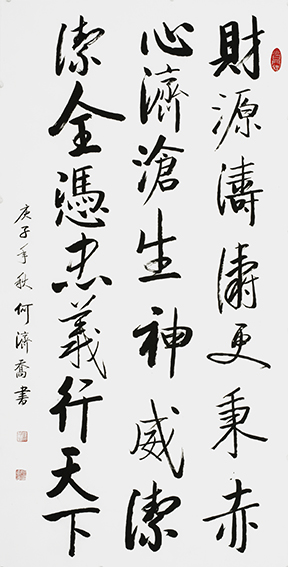 財源濤濤更秉赤
心濟滄生神威凜
凜全憑忠義行天下
庚子年秋何濟喬書